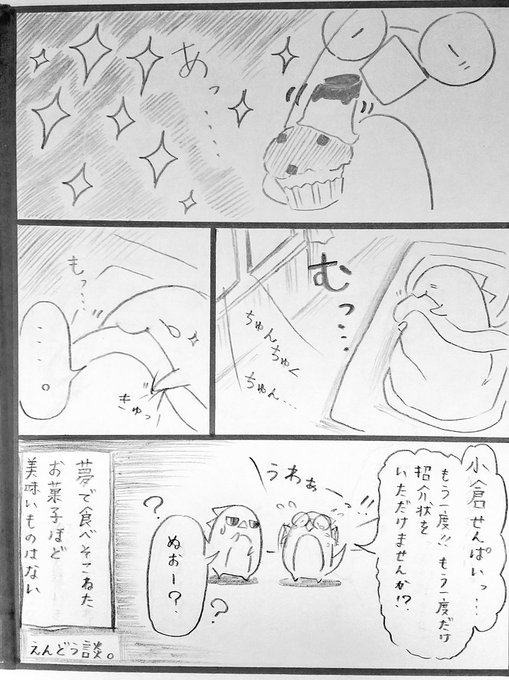 あっ・・・・
むっ・・・
ちゅん
ちゅく
ちゅん・・・
もっ・・・
・・・。
きゅっ
小倉せんぱいっ・・・
もう一度!!もう一度だけ
招介状を
いただけませんか!?
うわぁー
!!
?
ぬぉー?
?
夢で食べそこねた
お菓子ほど
美味いものはない
えんどう談。